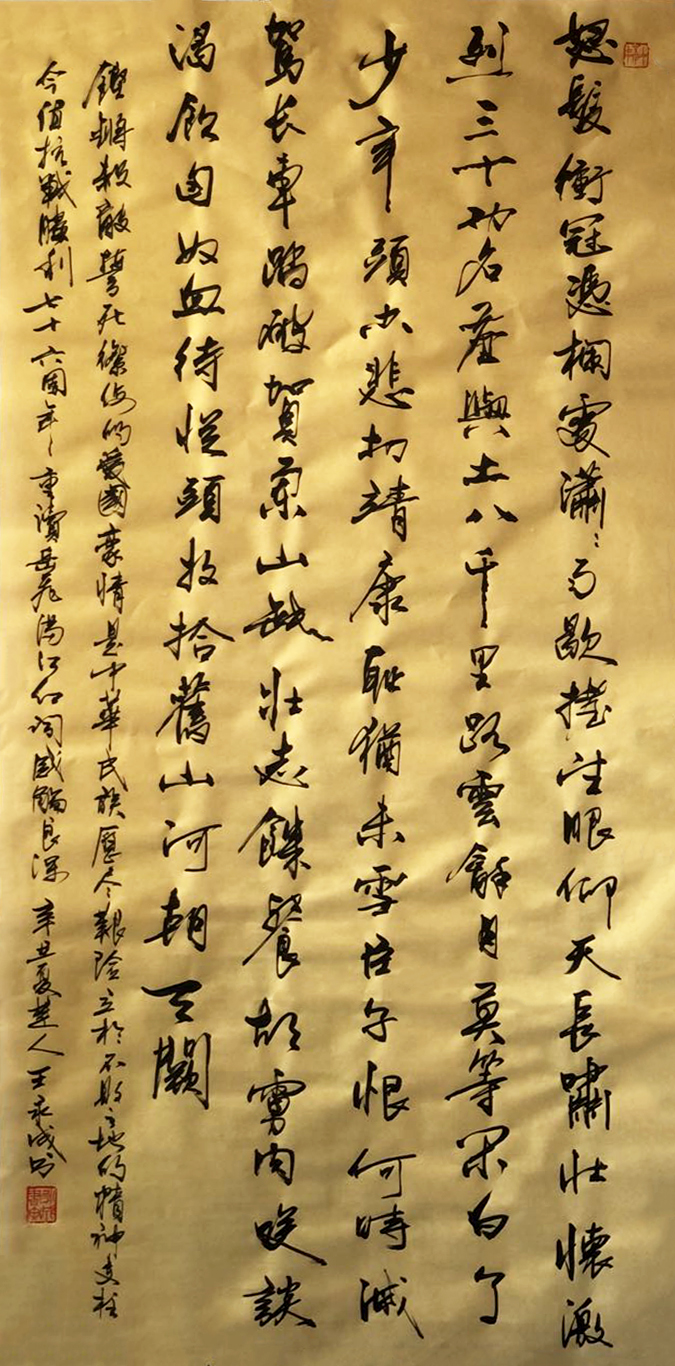 怒髮衝冠憑欄處瀟〻雨歇擡望眼仰天長嘯壯懷激
烈三十功名塵與土八千里路雲龢月莫等閑白了
少年頭空悲切靖康恥猶未雪臣子恨何時滅
駕长車踏破賀蘭山缺壯志饑餐胡虜肉咲談
渴飲匈奴血待從頭收拾舊山河朝天闕
鏗鏘殺敵誓死禦侮的愛國豪情是中華民族歷尽艱險立於不敗之地的精神支柱
今值抗戰勝利七十六周年重讀岳飛滿江红詞感觸良深 辛丑夏楚人王永成